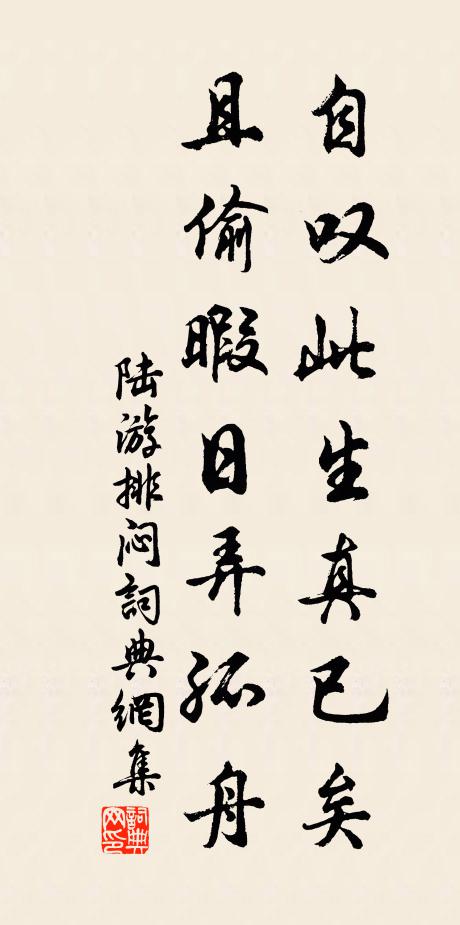 自叹此生真已矣
且偷暇日弄孤舟
陆游排闷詞典網集
詞典网印